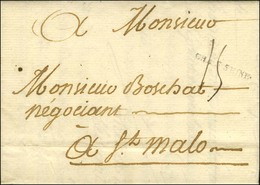 A Monsieur
Monsieur Boschat
négociant
15
A St. malo